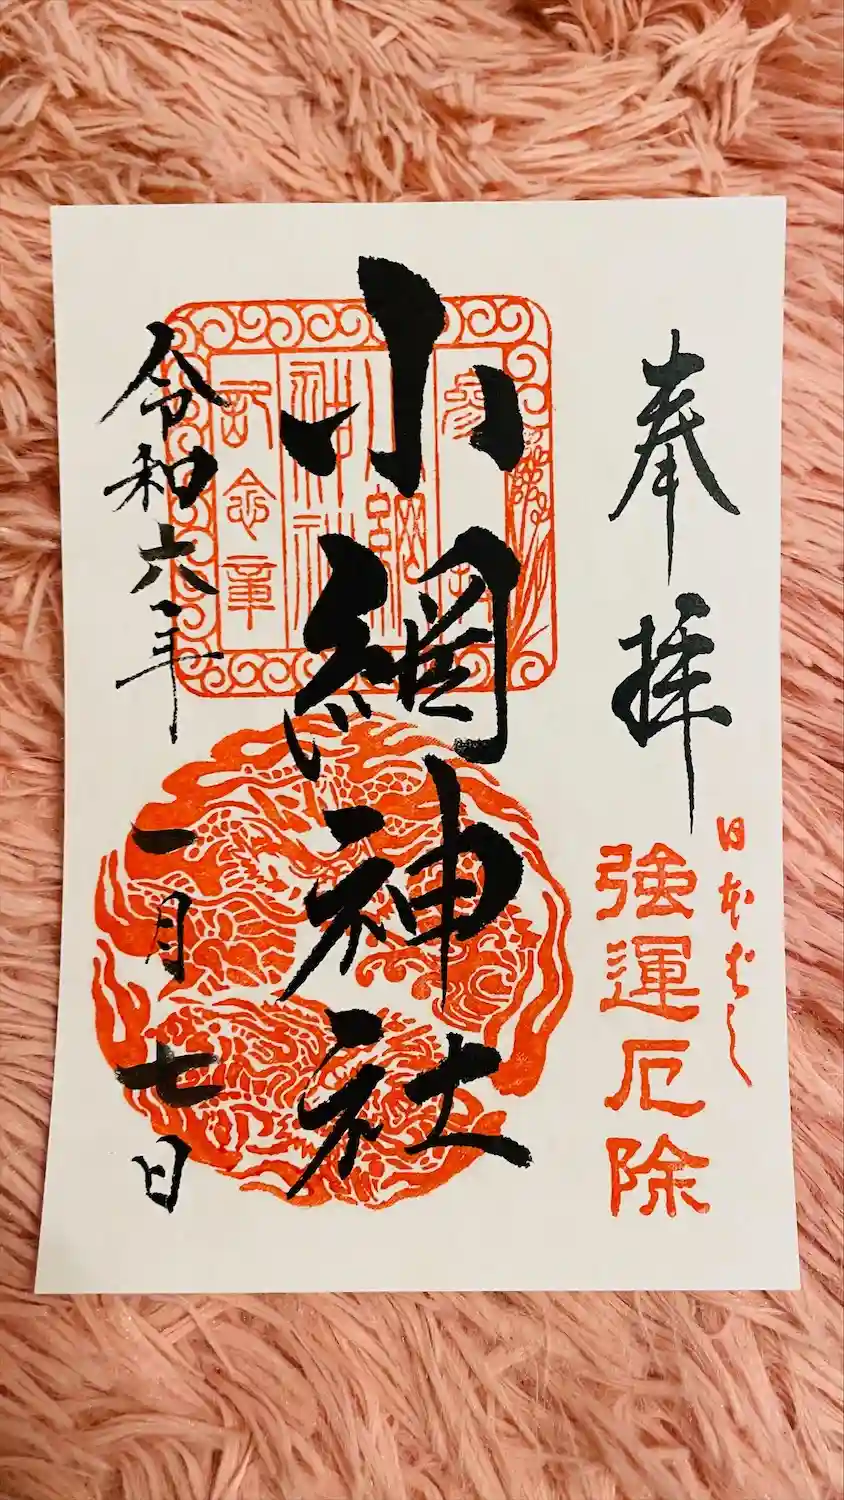 奉拝
日本ばし
強運厄除
小網神社
参拝
小網
神社
記念章
令和六年
一月七日